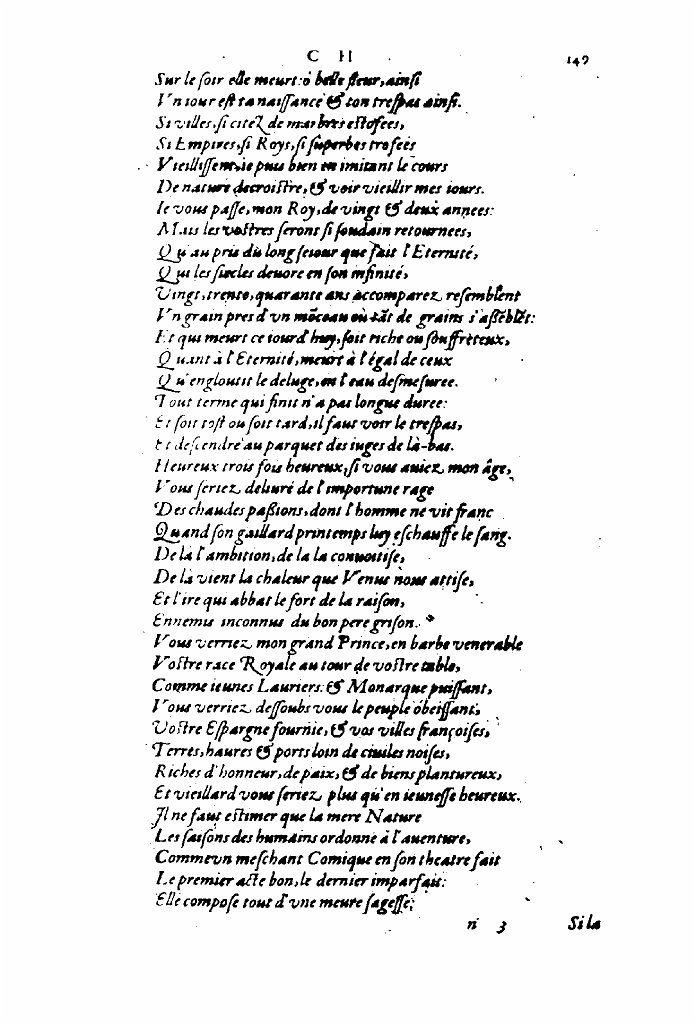 C H
149
Sur le soir elle meurt: ô belle fleur, ainsi
Vn iour est ta naissance & ton trespas ainsi.
Si villes, si citez de marbres estofees,
Si Empires, si Roys, si superbes trofees
Vieillissent, ie puis bien en imitant le cours
De nature decroistre, & voir vieillir mes iours.
Ie vous passe, mon Roy, de vingt & deux annees:
Mais les vostres seront si soudain retournees,
Qu'au pris du long seiour que fait l'Eternité,
Qui les siecles deuore en son infinité,
Vingt, trente, quarante ans accomparez resemblent
Vn grain pres d'vn mõceau où tãt de grains s'assẽblẽt:
Et qui meurt ce iourd'huy, soit riche ou souffreteux,
Quant à l'Eternité, meurt à l'égal de ceux
Qu'engloutit le deluge, en l'eau desmesuree.
Tout terme qui finit n'a pas longue duree:
Et soit tost ou soit tard, il faut voir le trespas,
Et descendre au parquet des iuges de là-bas.
Heureux trois fois heureux, si vous auiez mon âge,
Vous seriez deliuré de l'importune rage
Des chaudes passions, dont l'homme ne vit franc
Quand son gaillard printemps luy eschauffe le sang.
De là l'ambition, de la la conuoitise,
De là vient la chaleur que Venus nous attise,
Et l'ire qui abbat le fort de la raison,
Ennemis inconnus du bon pere grison.
Vous verriez mon grand Prince, en barbe venerable
Vostre race Royale au tour de vostre table,
Comme ieunes Lauriers: & Monarque puissant,
Vous verriez dessoubs vous le peuple obeissant,
Vostre Espargne fournie, & vos villes françoises,
Terres, haures & ports loin de ciuiles noises,
Riches d'honneur, de paix, & de biens plantureux,
Et vieillard vous seriez plus qu'en ieunesse heureux.
Il ne faut estimer que la mere Nature
Les saisons des humains ordonne à l'auenture,
Comme vn meschant Comique en son theatre fait
Le premier acte bon, le dernier imparfait:
Elle compose tout d'vne meure sagesse,
n 3
Si la